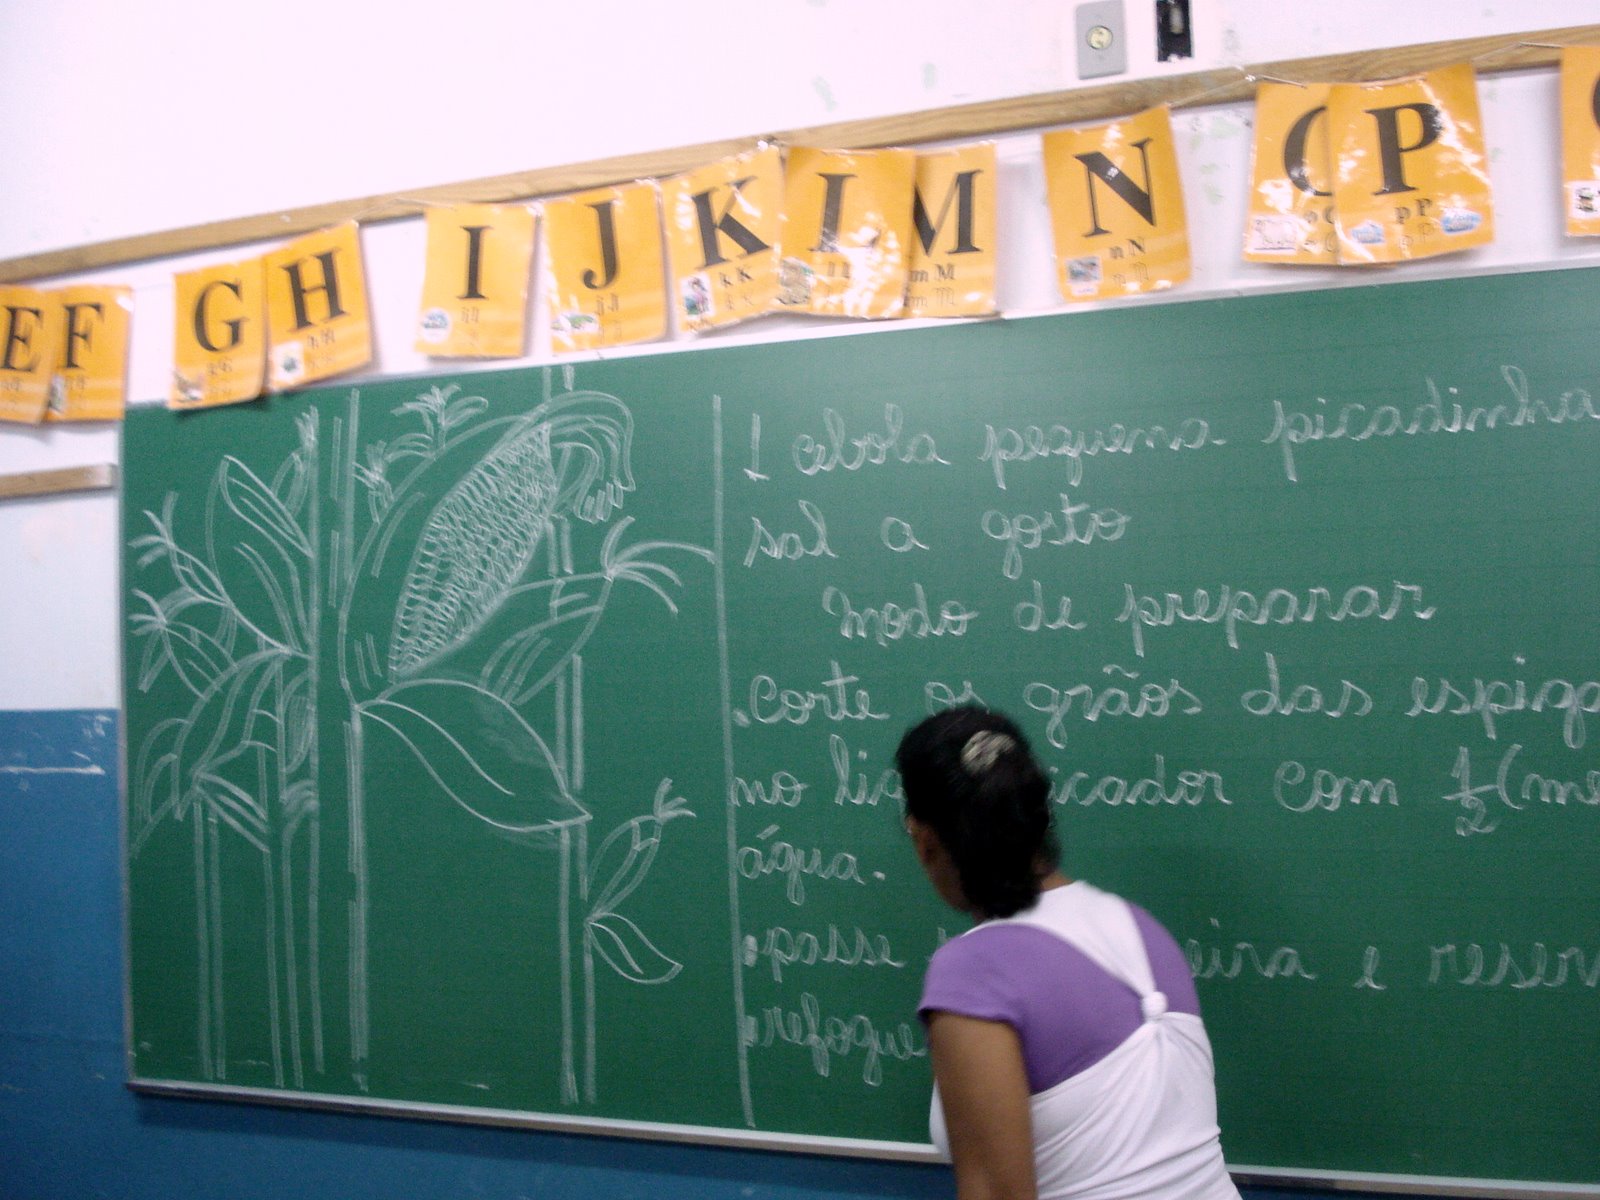 E F G H I J K L M N O P
1 cebola pequena picadinha
sal a gosto
Modo de preparar
.Corte os grãos das espiga
no icador com 1/2 (me
água.
.passe eira e reser
.refogue